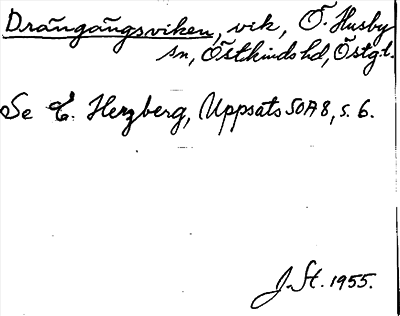 Drängängsviken, vik, Ö. Husby
sn, Östkinds hd, Östgl.
Se E. Herzberg, Uppsats SOÄ 8, s. 6.
J. St. 1955.